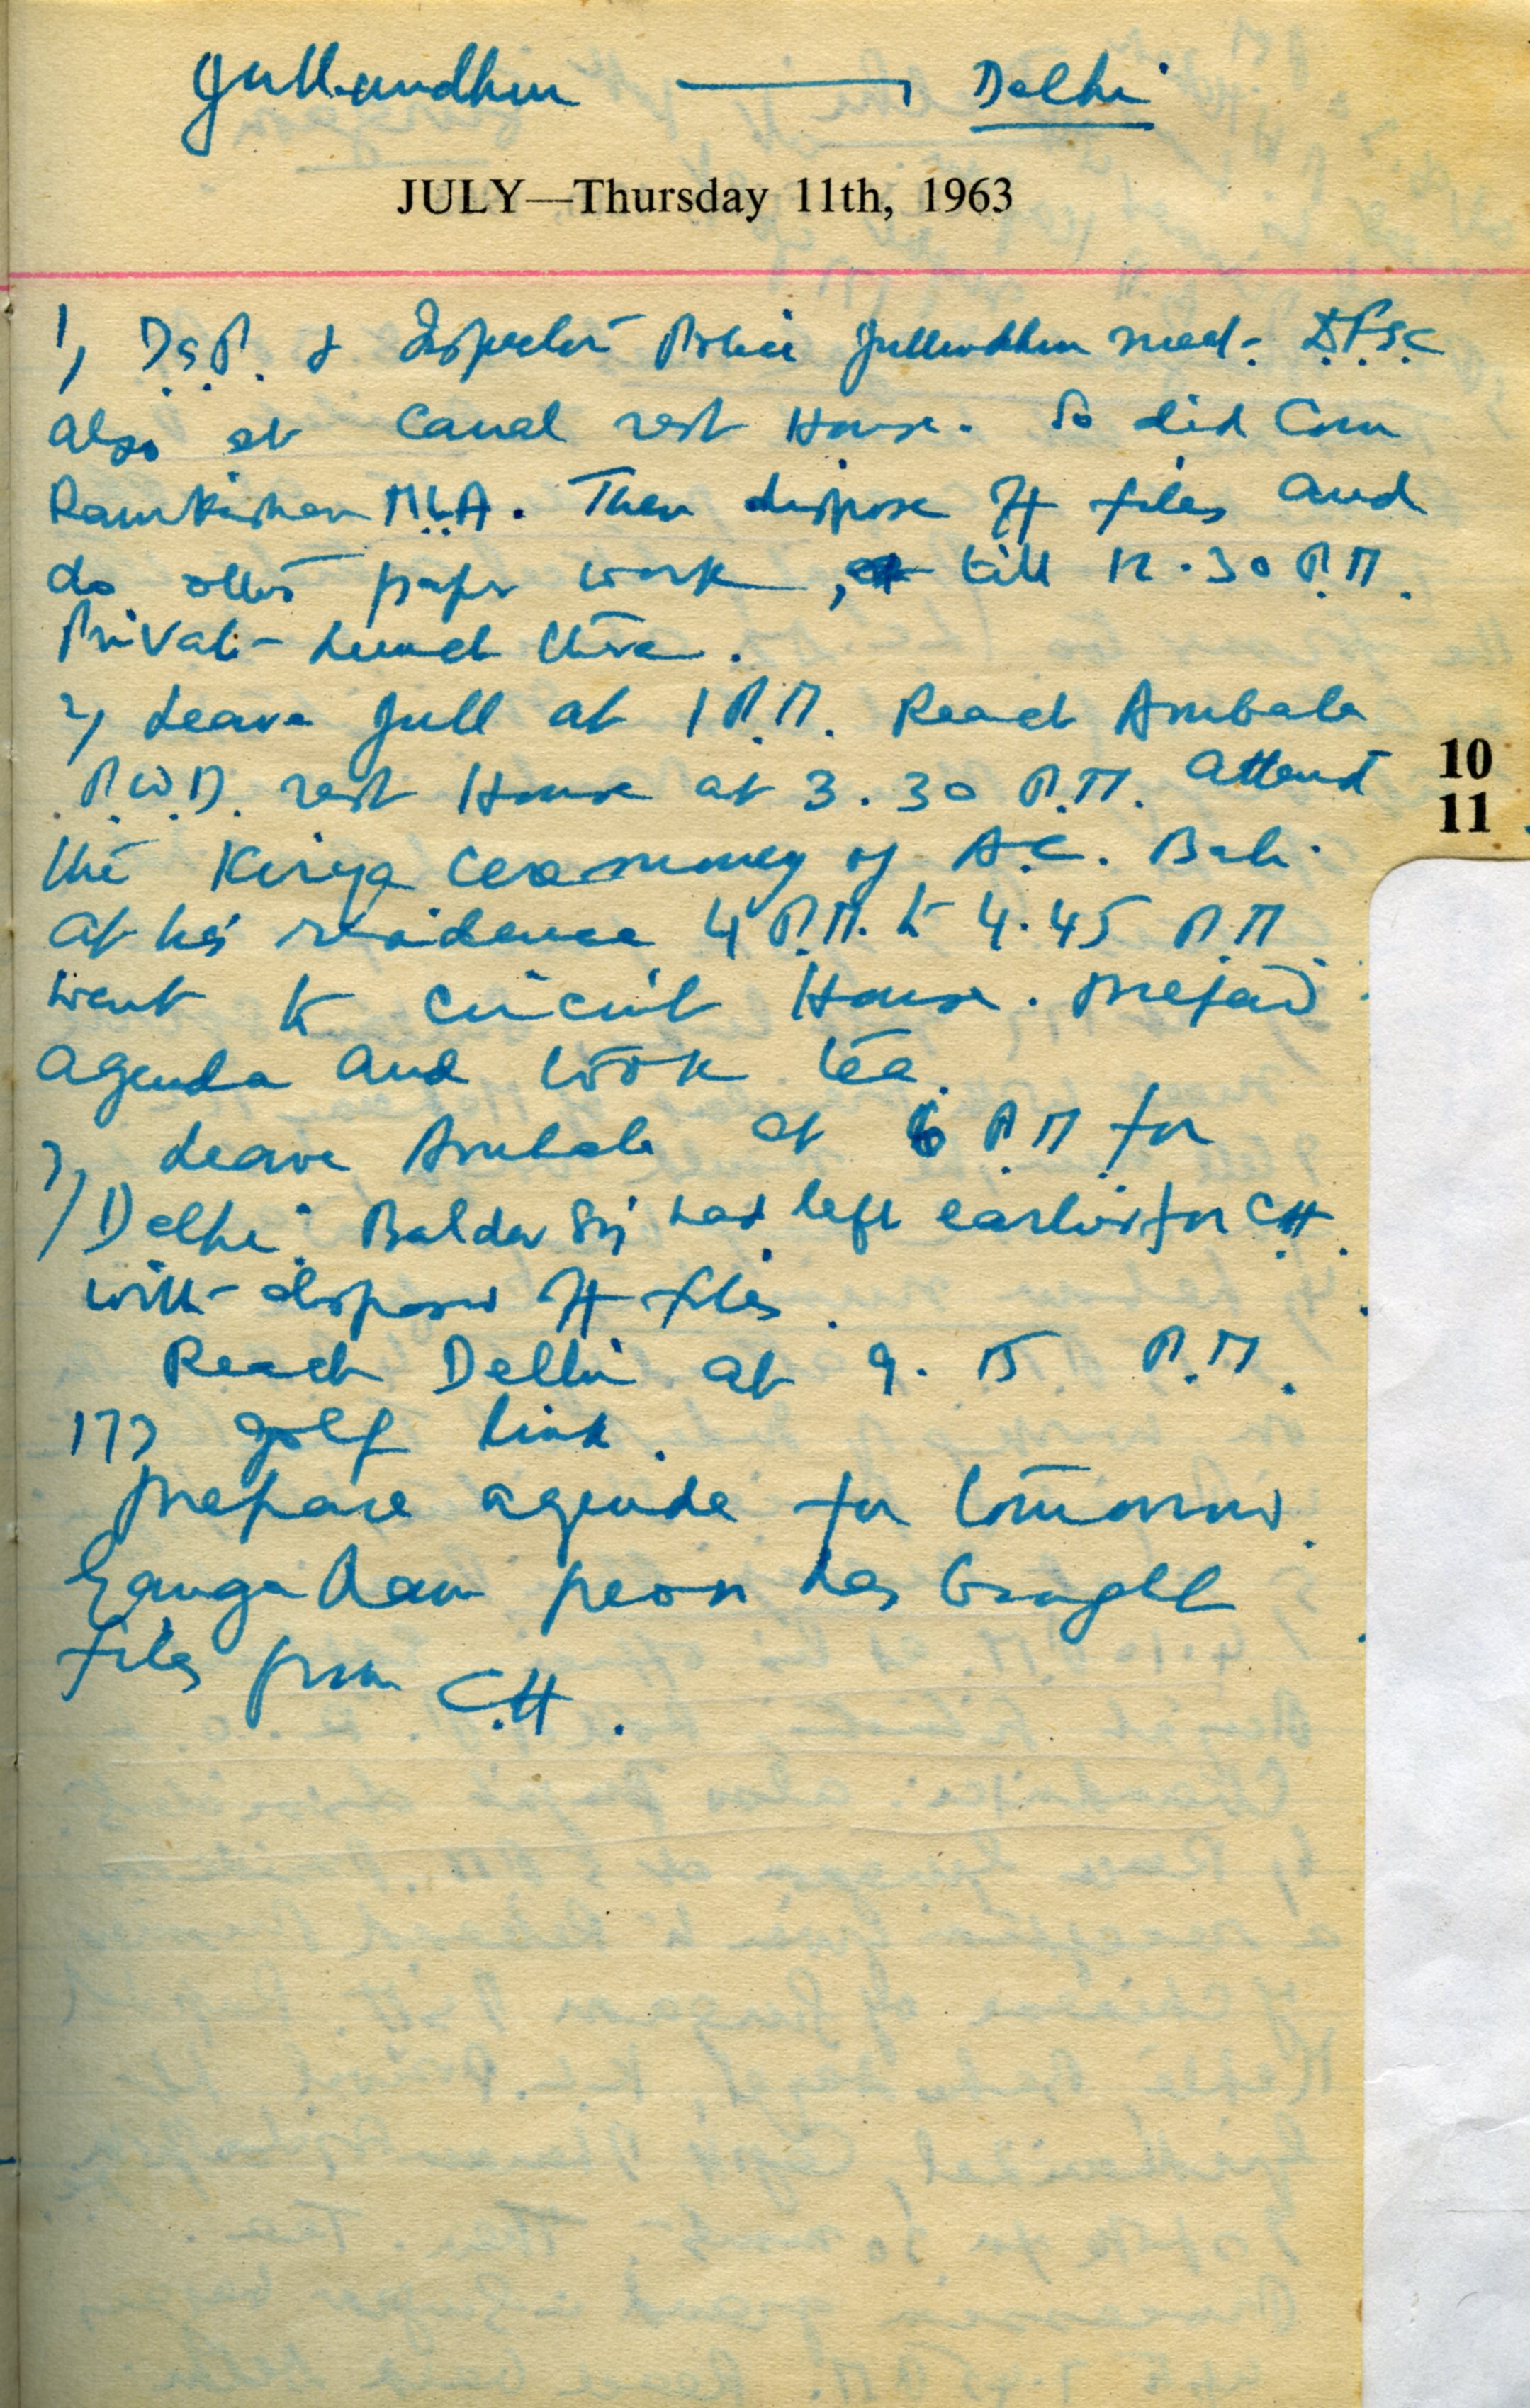 Jullundhur — Delhi
JULY—Thursday 11th, 1963
1) D.S.P. & Inspector Police Jullundhur meet. D.F.S.C
also at Canal rest House. So did Com
Ramkishan M.L.A. Then dispose off files and
do other paper work, till 12.30 P.M.
Private Lunch there.
2) Leave Jull at 1 P.M. Reach Ambala
P.W.D. rest House at 3.30 P.M. Attend
the Kirya Ceremoney of A.C. Bali
at his residence 4 P.M. to 4.45 P.M.
went to Circuit House. Prepare
agenda and took tea.
3) Leave Ambala at 6 P.M for
Delhi. Baldev Sing had left earlier for C.H.
with disposed off files.
Reach Delhi at 9.15 P.M.
177 golf Link.
Prepare agenda for tomorrow.
Ganga Ram peon has brought
files from C.H.
10
11